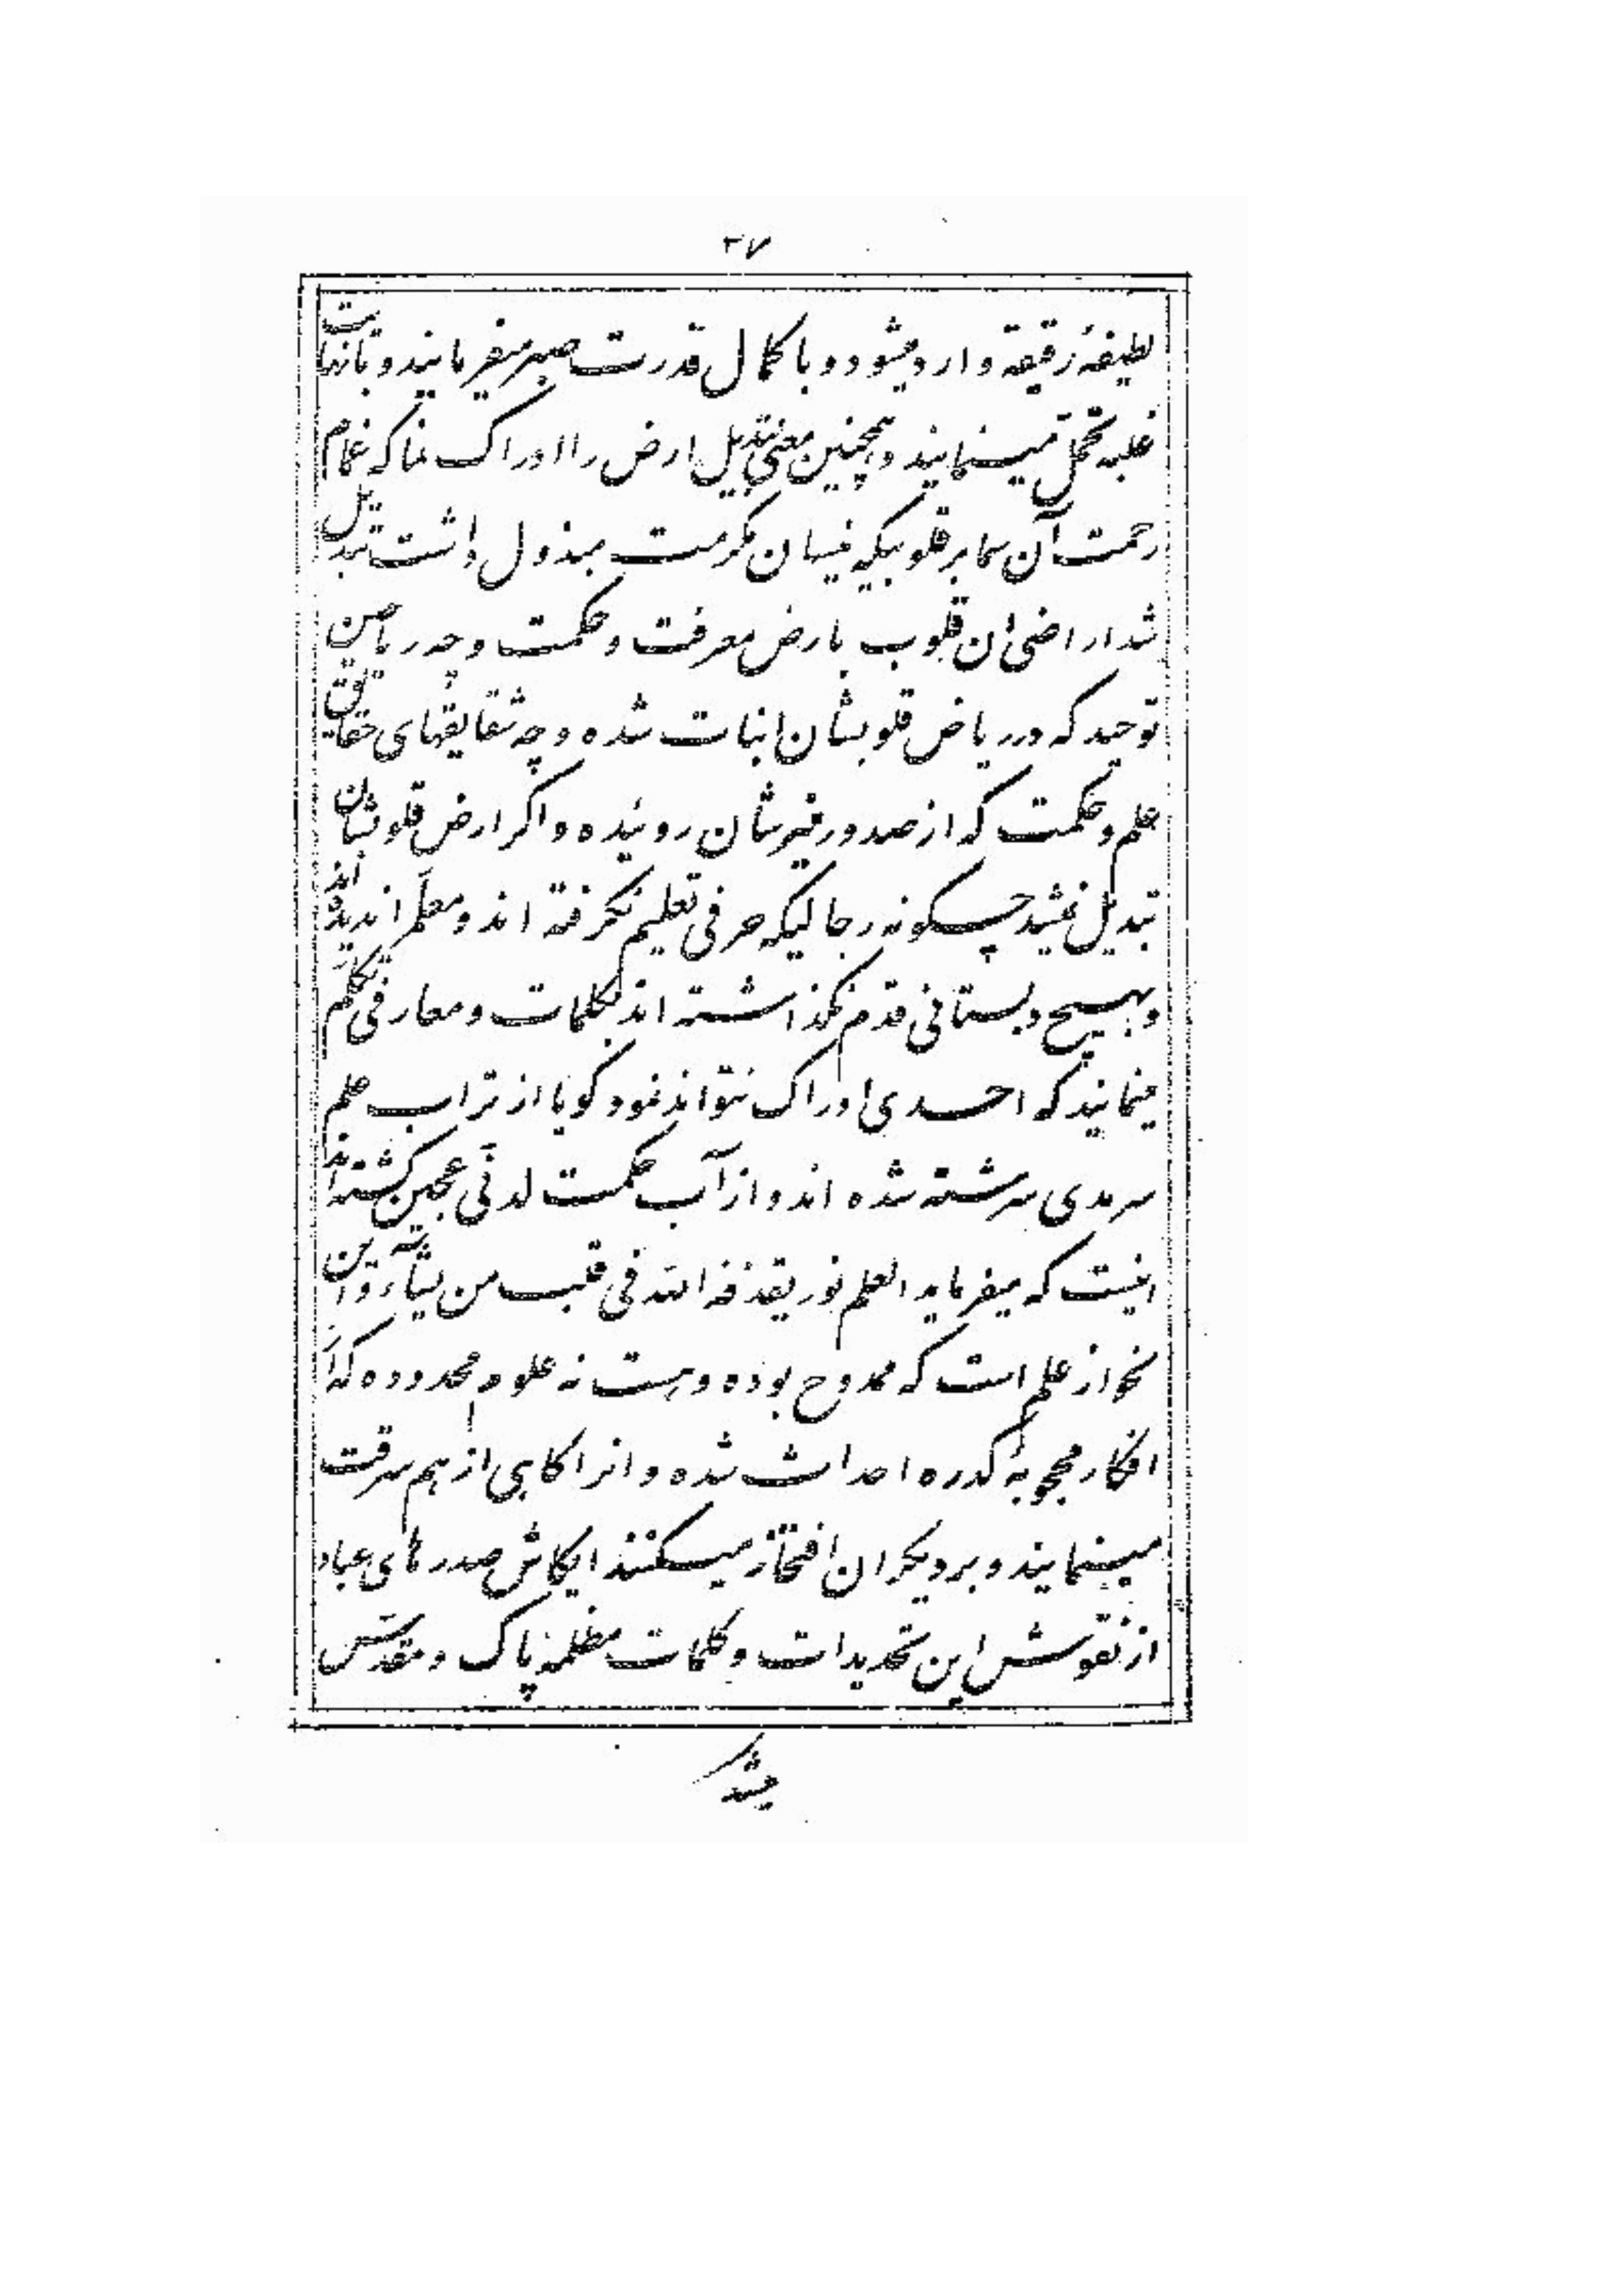 ۳۷
لطیفهٔ رقیقه وارد میشود و با کمال قدرت صبر میفرمایند و با نهایت
غلبه تحمّل مینمایند و همچنین معنی تبدیل ارض را ادراک نما که غمام
رحمت آن سما بر قلوبیکه نیسان مکرمت مبذول داشت تبدیل
شد اراضی ان قلوب بارض معرفت و حکمت و چه ریاحین
توحید که در ریاض قلوبشان انبات شده و چه شقایقهای حقایق
علم و حکمت که از صدور منیرشان روئیده و اکر ارض قلوبشان
تبدیل نمیشد چکونه رجالیکه حرفی تعلیم نکرفته اند و معلّم ندیده اند
و بهیچ دبستانی قدم نکذاشته اند بکلمات و معارفی تکلّم
مینمایند که احدی ادراک نتواند نمود کویا از تراب علم
سرمدی سرشته شده اند و از آب حکمت لدنّی عجین کشته اند
اینست که میفرماید العلم نور یقذفه الله فی قلب من یشآء و این
نحو از علم است که ممدوح بوده و هست نه علوم محدوده که از
افکار محجوبهٔ کدره احداث شده و انرا کاهی از هم سرقت
مینمایند و بر دیکران افتخار میکنند ایکاش صدرهای عباد
از نقوش این تحدیدات و کلمات مظلمه پاک و مقدّس
میشد که